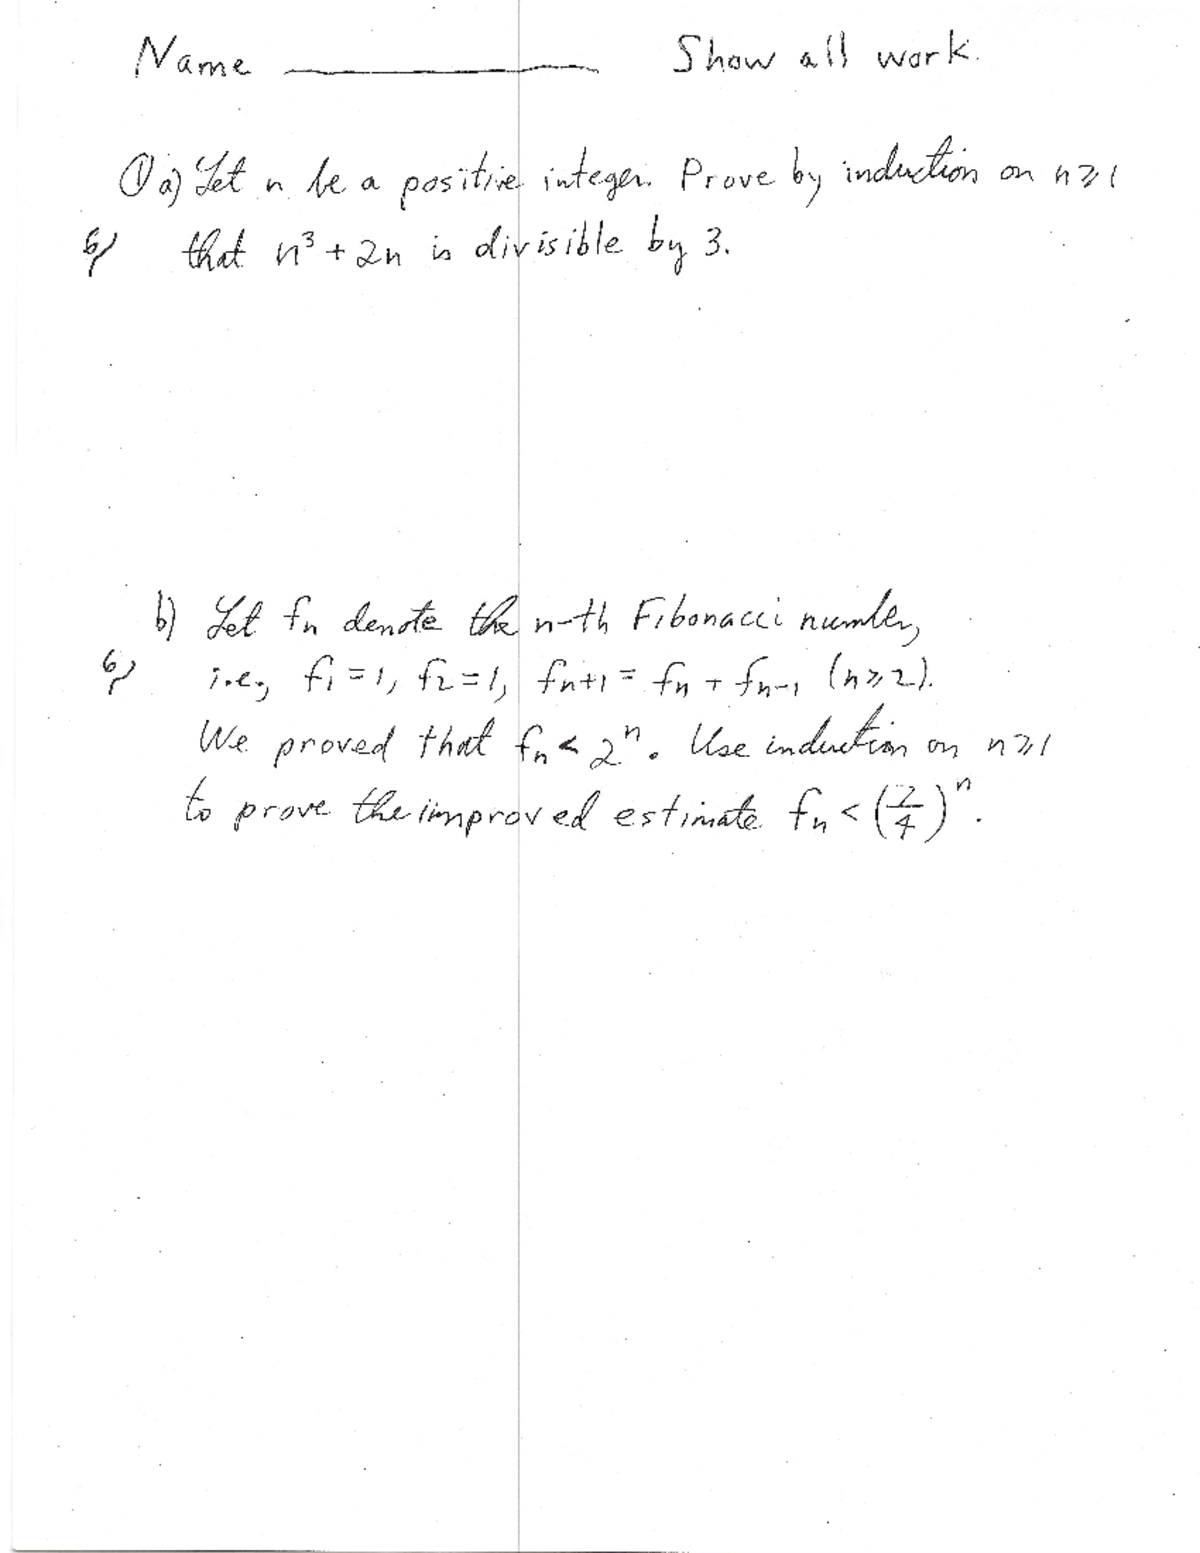 Name ________ Show all work.
① a) Let n be a positive integer. Prove by induction on n ≥ 1
6/ that n³ + 2n is divisible by 3.
b) Let fn denote the n-th Fibonacci number,
6/ i.e., f₁ = 1, f₂ = 1, fn+1 = fn + fn-1 (n ≥ 2).
We proved that fn < 2ⁿ. Use induction on n ≥ 1
to prove the improved estimate fn < (7/4)ⁿ.